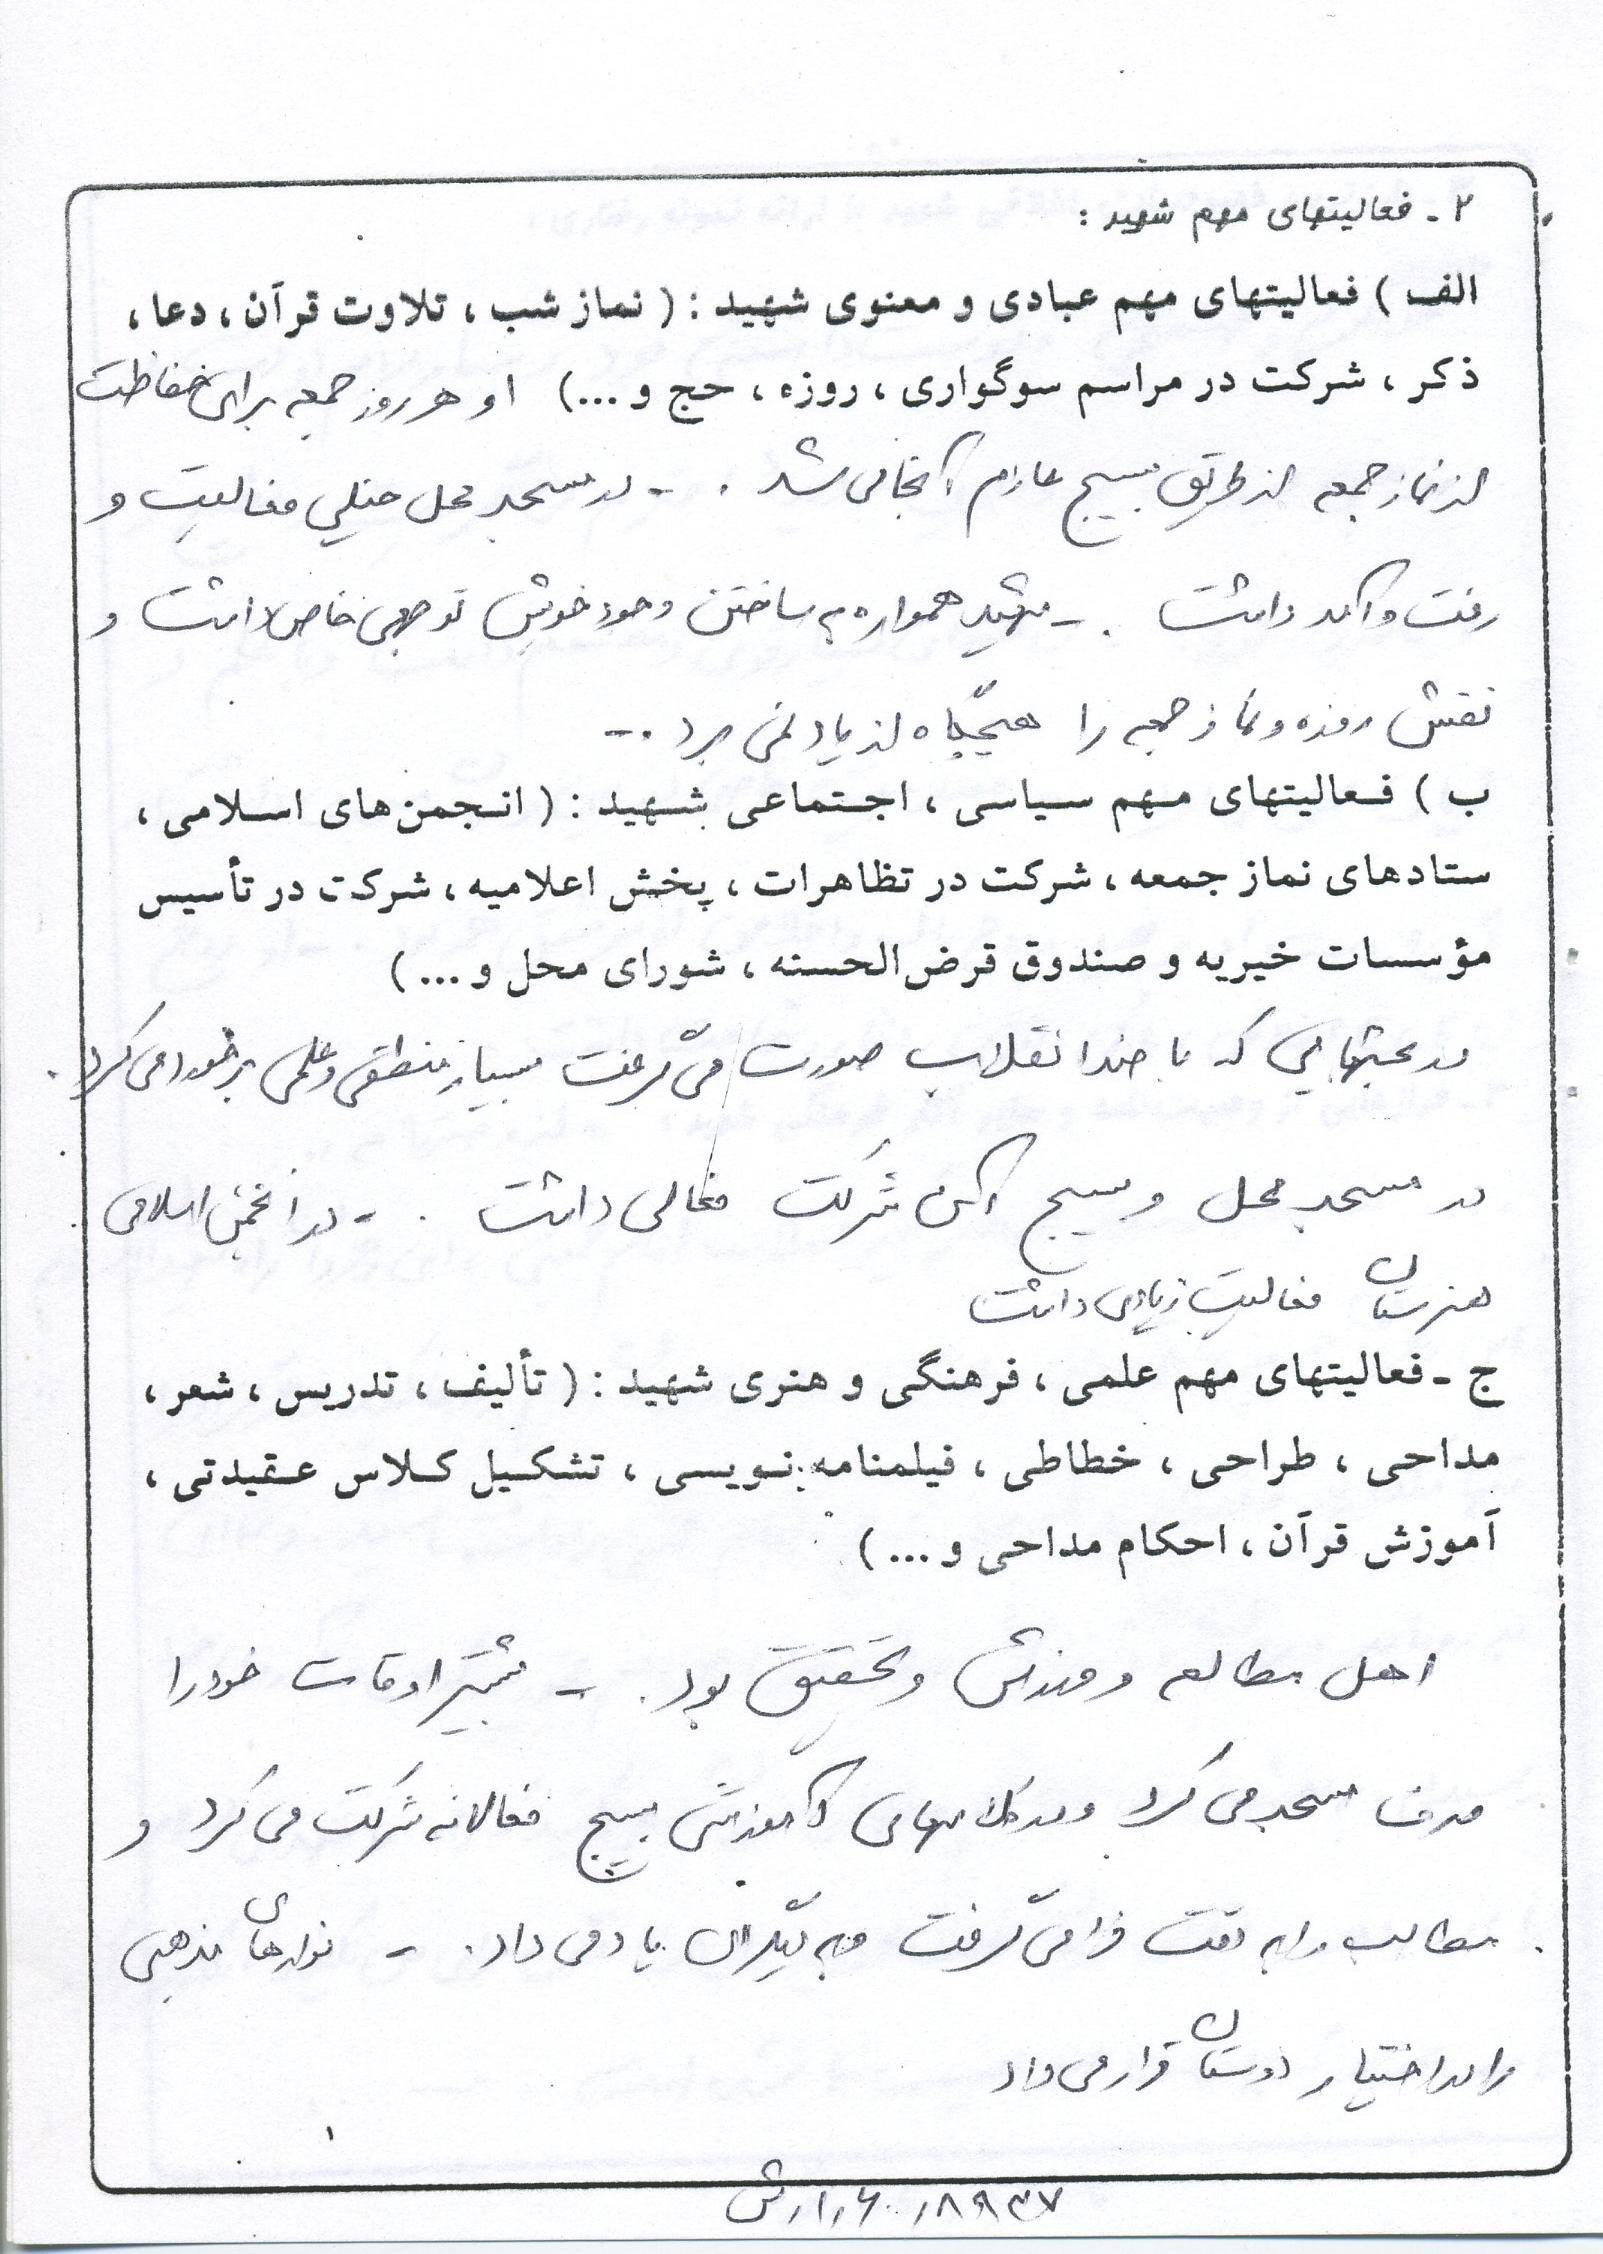 ۲ - فعالیتهای مهم شهید :
الف ) فعالیتهای مهم عبادی و معنوی شهید : ( نماز شب ، تلاوت قرآن ، دعا ،
ذکر ، شرکت در مراسم سوگواری ، روزه ، حج و ... ) او هر روز جمعه برای حفاظت
از نماز جمعه از طریق بسیج عازم آنجا می شد . - در مسجد محل خیلی فعالیت و
رفت و آمد داشت . - شهید همواره به ساختن وجود خویش توجهی خاص داشت و
نقش روزه و نماز جمعه را هیچگاه از یاد نمی برد . -
ب ) فعالیتهای مهم سیاسی ، اجتماعی شهید : ( انجمن‌های اسلامی ،
ستادهای نماز جمعه ، شرکت در تظاهرات ، پخش اعلامیه ، شرکت در تأسیس
مؤسسات خیریه و صندوق قرض‌الحسنه ، شورای محل و ... )
در بحثهایی که با ضد انقلاب صورت می گرفت بسیار منطقی و علمی برخورد می کرد .
در مسجد محل و بسیج آن شرکت فعالی داشت . - در انجمن اسلامی
هنرستان فعالیت زیادی داشت
ج - فعالیتهای مهم علمی ، فرهنگی و هنری شهید : ( تألیف ، تدریس ، شعر ،
مداحی ، طراحی ، خطاطی ، فیلمنامه نویسی ، تشکیل کلاس عقیدتی ،
آموزش قرآن ، احکام مداحی و ... )
اهل مطالعه و ورزش و تحقیق بود . - بیشتر اوقات خود را
صرف مسجد می کرد و در کلاسهای آموزشی بسیج فعالانه شرکت می کرد و
مطالب را به دقت فرا می گرفت و به دیگران یاد می داد . - نوارهای مذهبی
را در اختیار دوستان قرار می داد